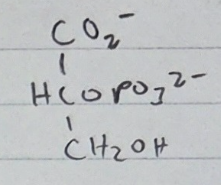 CO₂⁻
HCOPO₃²⁻
CH₂OH